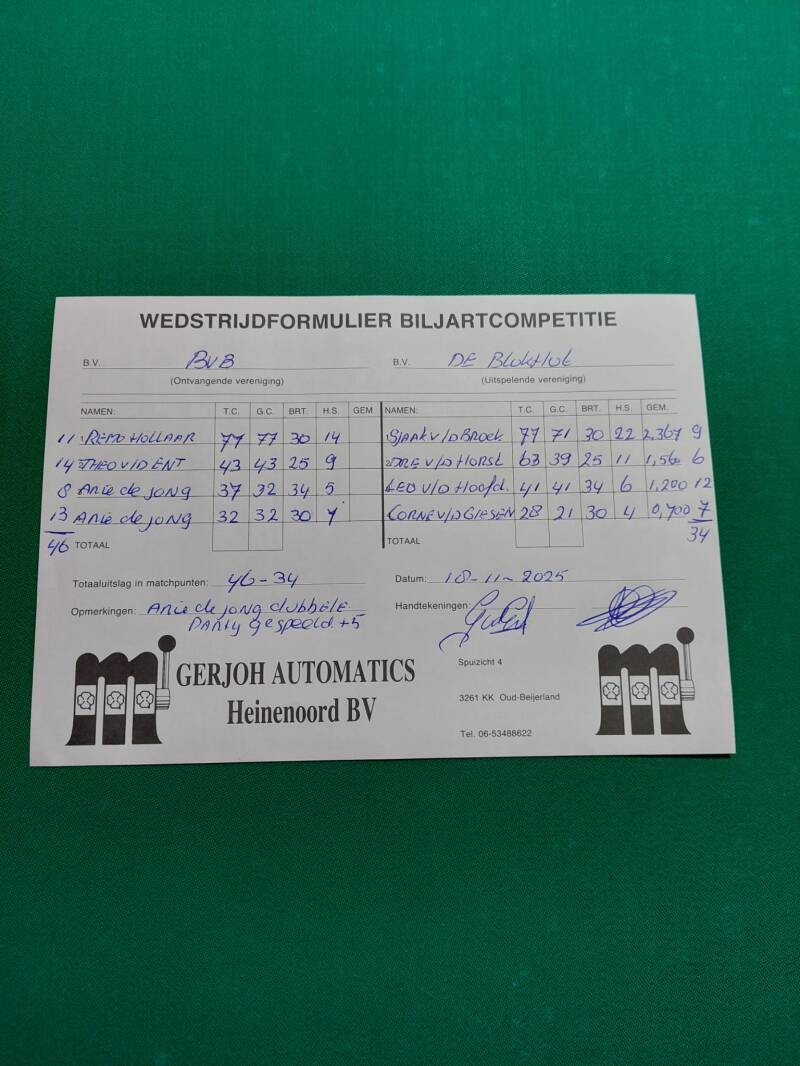 WEDSTRIJDFORMULIER BILJARTCOMPETITIE
B.V. BVB B.V. DE Blokhut
(Ontvangende vereniging) (Uitspelende vereniging)
NAMEN: T.C. G.C. BRT. H.S. GEM. NAMEN: T.C. G.C. BRT. H.S. GEM.
11 REMO HOLLAAR 77 77 30 14 SJAAK V/D Broek 77 71 30 22 2,367 9
14 THEO V/D ENT 43 43 25 9 DRE V/D HORST 63 39 25 11 1,560 6
8 Arie de jong 37 32 34 5 LEO V/D Hoofd. 41 41 34 6 1,200 12
13 Arie de jong 32 32 30 4 CORNE V/D GIESEN 28 21 30 4 0,700 7
46 TOTAAL TOTAAL 34
Totaaluitslag in matchpunten: 46-34 Datum: 18-11-2025
Opmerkingen: Arie de jong dubbele Handtekeningen:
Party gespeeld +5
GERJOH AUTOMATICS
Heinenoord BV
Spuizicht 4
3261 KK Oud-Beijerland
Tel. 06-53488622